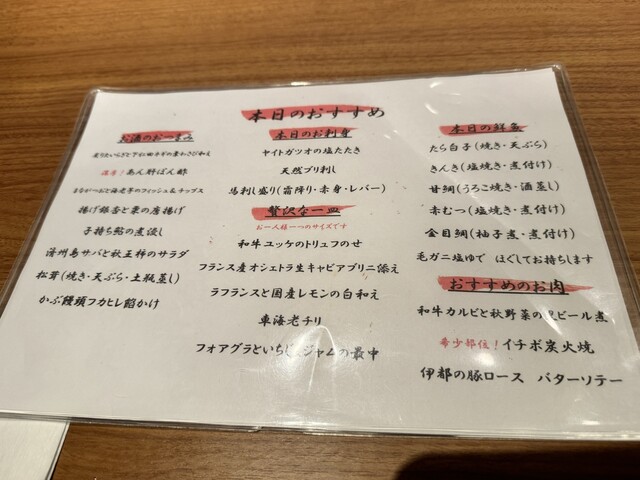 本日のおすすめ
お酒のおつまみ
炙りたいらぎと下仁田ネギの素わさび和え
濃厚!あん肝ぽん酢
まながつおと海老芋のフィッシュ&チップス
揚げ銀杏と栗の唐揚げ
子持ち鮎の煮浸し
済州島サバと秋王柿のサラダ
松茸(焼き・天ぷら・土瓶蒸し)
かぶ饅頭フカヒレ餡かけ
本日のお刺身
ヤイトガツオの塩たたき
天然ブリ刺し
馬刺し盛り(霜降り・赤身・レバー)
贅沢な一皿
お一人様一つのサイズです
和牛ユッケのトリュフのせ
フランス産オシェトラ生キャビアブリニ添え
ラフランスと国産レモンの白和え
車海老チリ
フォアグラといちじくジャムの最中
本日の鮮魚
たら白子(焼き・天ぷら)
きんき(塩焼き・煮付け)
甘鯛(うろこ焼き・酒蒸し)
赤むつ(塩焼き・煮付け)
金目鯛(柚子煮・煮付け)
毛ガニ塩ゆで ほぐしてお持ちします
おすすめのお肉
和牛カルビと秋野菜の黒ビール煮
希少部位!イチボ炭火焼
伊都の豚ロース バターソテー